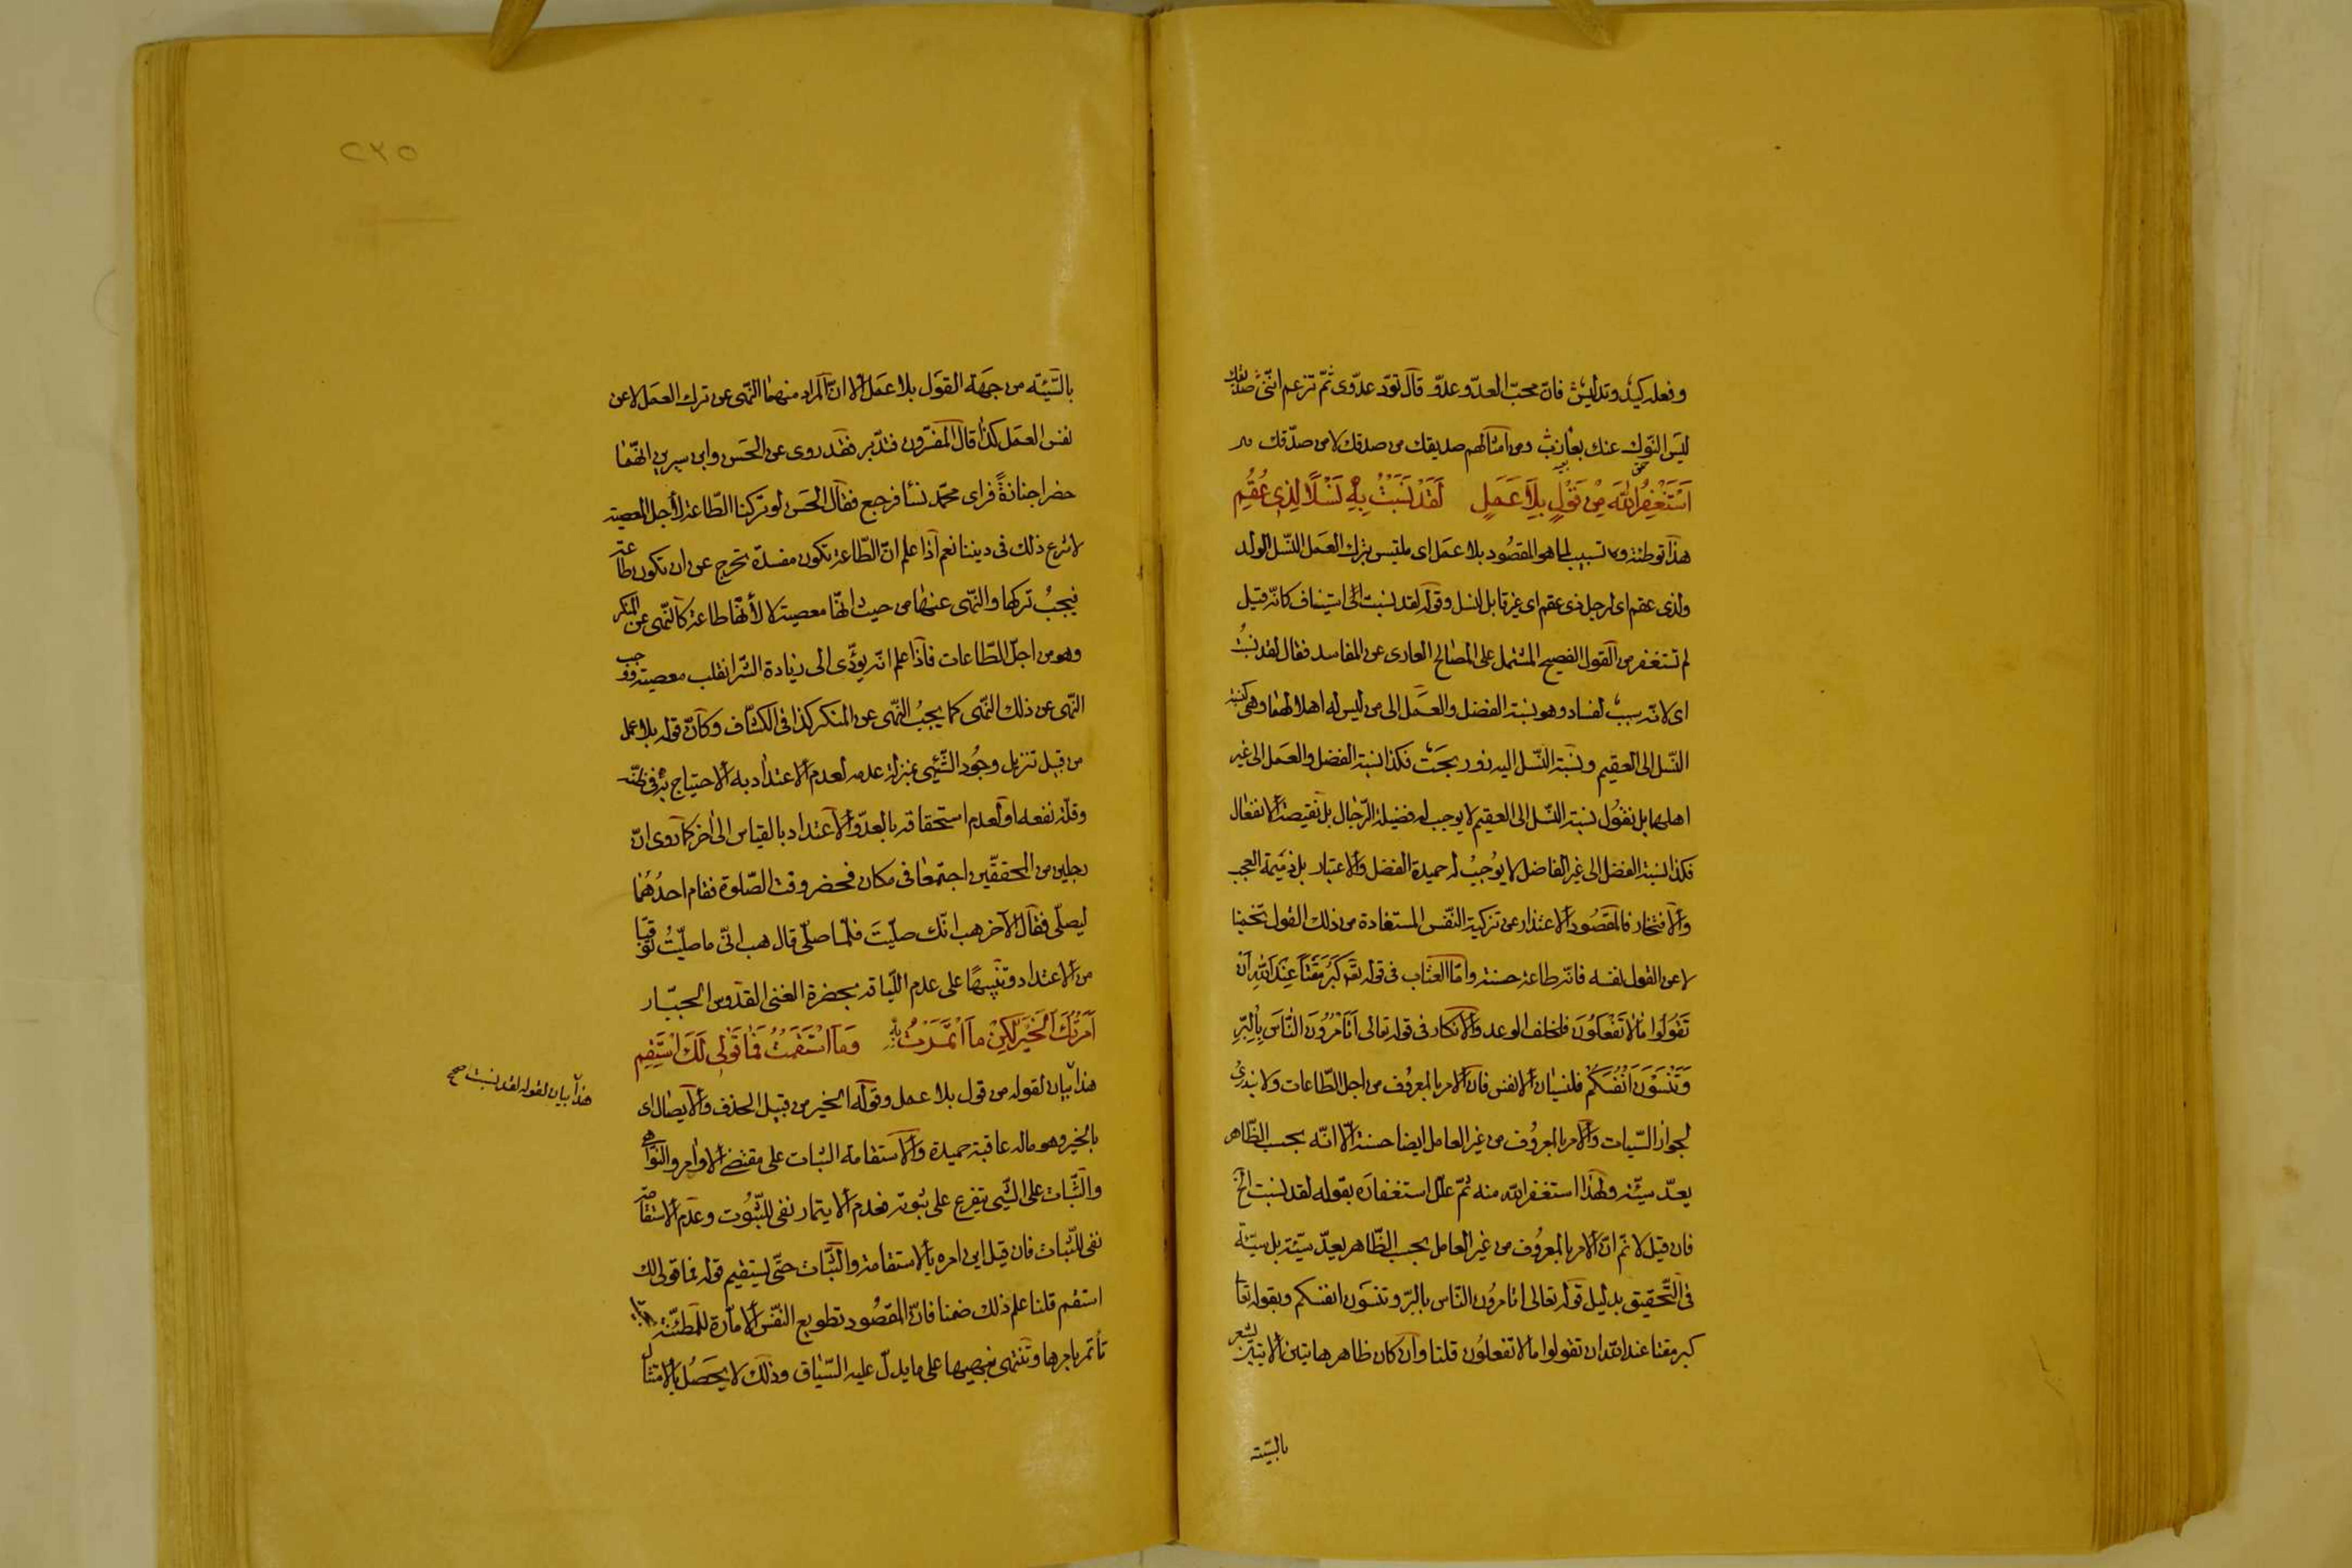 وفعله كيد وتدليس فان محبّ العدو عدوّ قال تودّ عدوّى ثمّ تزعم انّنى صديقك
ليس النوك عنك بعازب ومن امثالهم صديقك من صدقك لا من صدّقك
اَسْتَغْفِرُ اللّٰهَ مِنْ قَوْلٍ بِلَا عَمَلٍ لَقَدْ نَسَبْتُ بِهِ نَسْلًا لِذِى عُقُمِ
هذا توطئة لما هو المقصود بلا عمل اى ملتبس بترك العمل النّسل الولد
ولذى عقم اى لرجل ذى عقم اى غير قابل لنسل وقوله لقد نسبت الخ استيناف كانّه قيل
لم تستغفر من القول الفصيح المشتمل على المصالح العارى عن المفاسد فقال لقد نسبتُ
اى لانّه سبب لفساد وهو نسبة الفضل والعمل الى من ليس له اهلا لهما وهى كنسبة
النّسل الى العقيم ونسبة النّسل اليه زور بحت فكذا نسبة الفضل والعمل الى غير
اهلهما بل نقول نسبة النّسل الى العقيم لا يوجب له فضيلة الرّجال بل نقيصة الانفعال
فكذا نسبة الفضل الى غير الفاضل لا يوجب له حميدة الفضل والاعتبار بل ذميمة العجب
والافتخار فالمقصود الاعتذار عن تزكية النّفس المستفادة من ذلك القول تخمينا
لا عن القول نفسه فانّه طاعة حسنة وامّا العتاب فى قوله تع كَبُرَ مَقْتًا عِنْدَ اللّٰهِ اَنْ
تَقُولُوا مَا لَا تَفْعَلُونَ فلخلف الوعد والانكار فى قوله تعالى اَتَأْمُرُونَ النَّاسَ بِالْبِرِّ
وَتَنْسَوْنَ اَنْفُسَكُمْ فلنسيان الانفس فان الامر بالمعروف من اجل الطّاعات ولا
لجواز السّيات والامر بالمعروف من غير العامل ايضا حسنة الّا انّه بحسب الظّاهر
يعدّ سيّئة ولهذا استغفر اللّه منه ثمّ علّل استغفاره بقوله لقد نسبت الخ
فان قيل لا نمّ انّ الامر بالمعروف من غير العامل بحسب الظّاهر يعدّ سيّئة بل سيّئة
فى التّحقيق بدليل قوله تعالى اتامرون النّاس بالبرّ وتنسون انفسكم وبقوله تعا
كبر مقتا عند اللّه ان تقولوا ما لا تفعلون قلنا وان كان ظاهر هاتين الايتين يشعر
بالسّيّئة
٢٣٥
بالسّيّئة من جهة القول بلا عمل الّا انّ المراد منهما النّهى عن ترك العمل لا عن
نفس العمل كذا قال المفسّرون فتدبّر فقد روى عن الحسن وابن سيرين انّهما
حضرا جنازةً فراى محمّد نسا فرجع فقال الحسن لو تركنا الطّاعة لأجل المعصية
لاسرع ذلك فى ديننا نعم اذا علم انّ الطّاعة تكون مفسدة تخرج عن ان تكون طاعة
فيجبُ تركها والنّهى عنها من حيث انّها معصية لا لأنّها طاعة كالنّهى عن المنكر
وهو من اجلّ الطّاعات فاذا علم انّه يؤدّى الى زيادة الشّر انقلب معصية ووجب
النّهى عن ذلك النّهى كما يجبُ النّهى عن المنكر كذا فى الكشّاف وكأنّ قوله بلا عمل
من قبيل تنزيل وجُود الشّيئ بمنزلة عدمه لعدم الاعتداد به الاحتياج
وقلّة نفعه او لعدم استحقاقه بالعدّ والاعتداد بالقياس الى اخر كما روى انّ
رجلين من المحقّقين اجتمعا فى مكان فحضر وقت الصّلوة فقام احدُهُما
ليصلّى فقال الآخر هب انّك صلّيتَ فلمّا صلّى قال هب انّى ما صلّيتُ
من الاعتداد وتنبيهًا على عدم اللّياقة بحضرة الغنى القدّوس الجبّار
اَمَرْتُكَ الْخَيْرَ لٰكِنْ مَا ائْتَمَرْتُ بِهِ وَمَا اسْتَقَمْتُ فَمَا قَوْلِى لَكَ اسْتَقِمِ
هذا بيان لقوله من قول بلا عمل وقوله الخير من قبيل الحذف والايصال اى
هذا بيان لقوله لقد نسبت صح
بالخير وهو ماله عاقبة حميدة والاستقامة الثبات على مقتضى الاوامر والنواهى
والثّبات على الشّيئ يتفرع على ثبوته فعدم الايتمار نفى للثّبُوت وعدم الاستقامة
نفى للثّبات فان قيل اين امره بالاستقامة والثّبات حتّى يستقيم قوله فما قولى لك
استقم قلنا علم ذلك ضمنا فانّ المقصُود تطويع النّفس الامّارة للمطمئنّة
تأتمر بامرها وتنتهى بنهيها على ما يدلّ عليه السّياق وذلك لا يحَصُل الّا بالامتثال